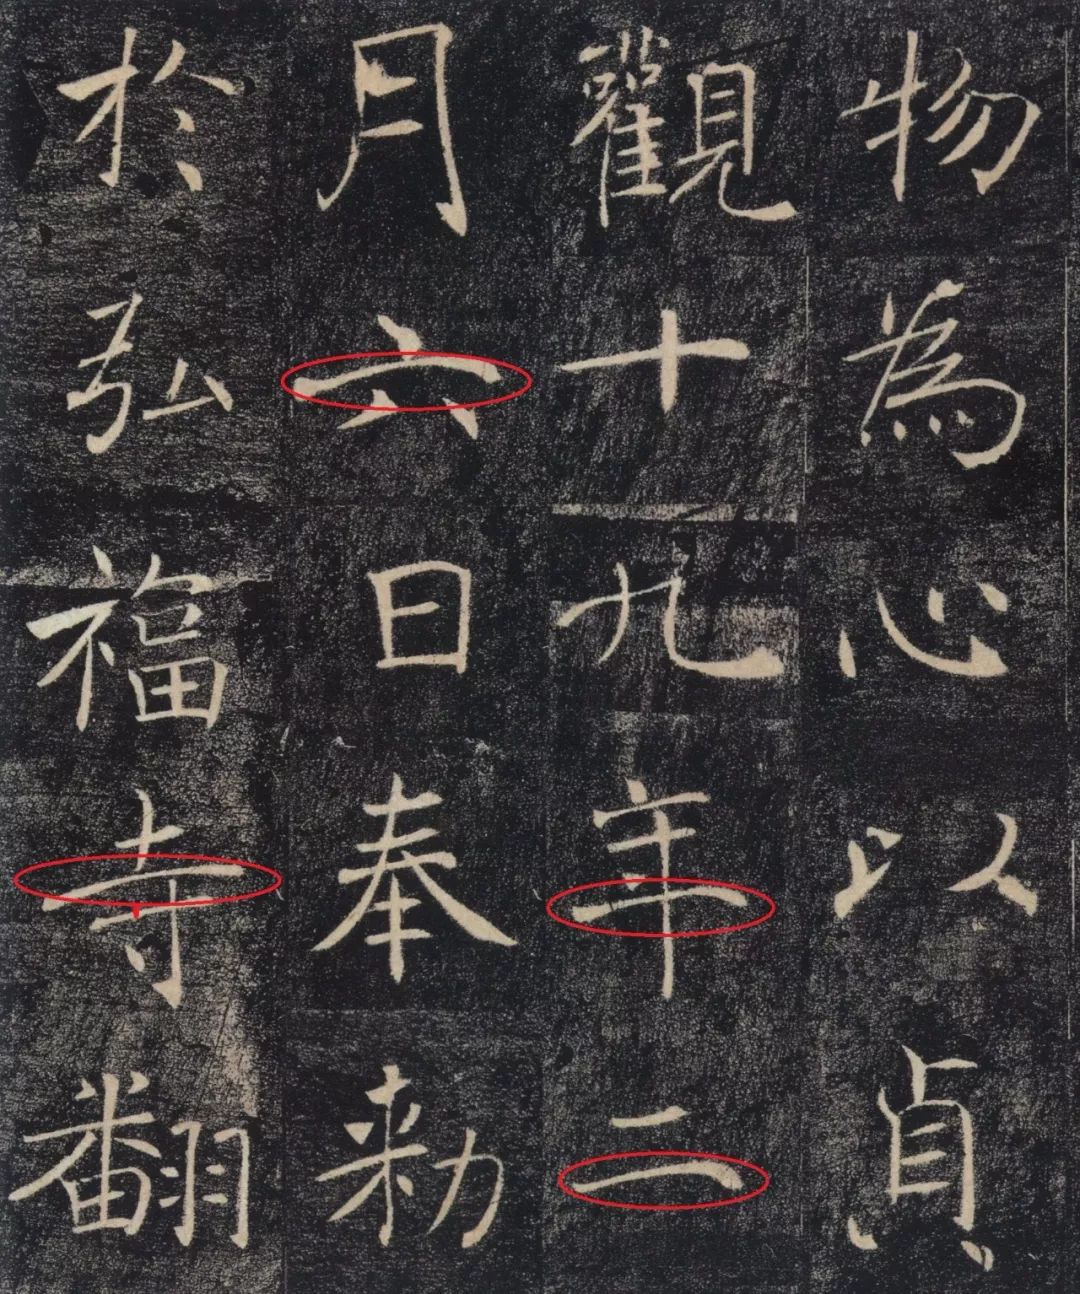 物為心以貞
觀十九年二
月六日奉勅
於弘福寺翻